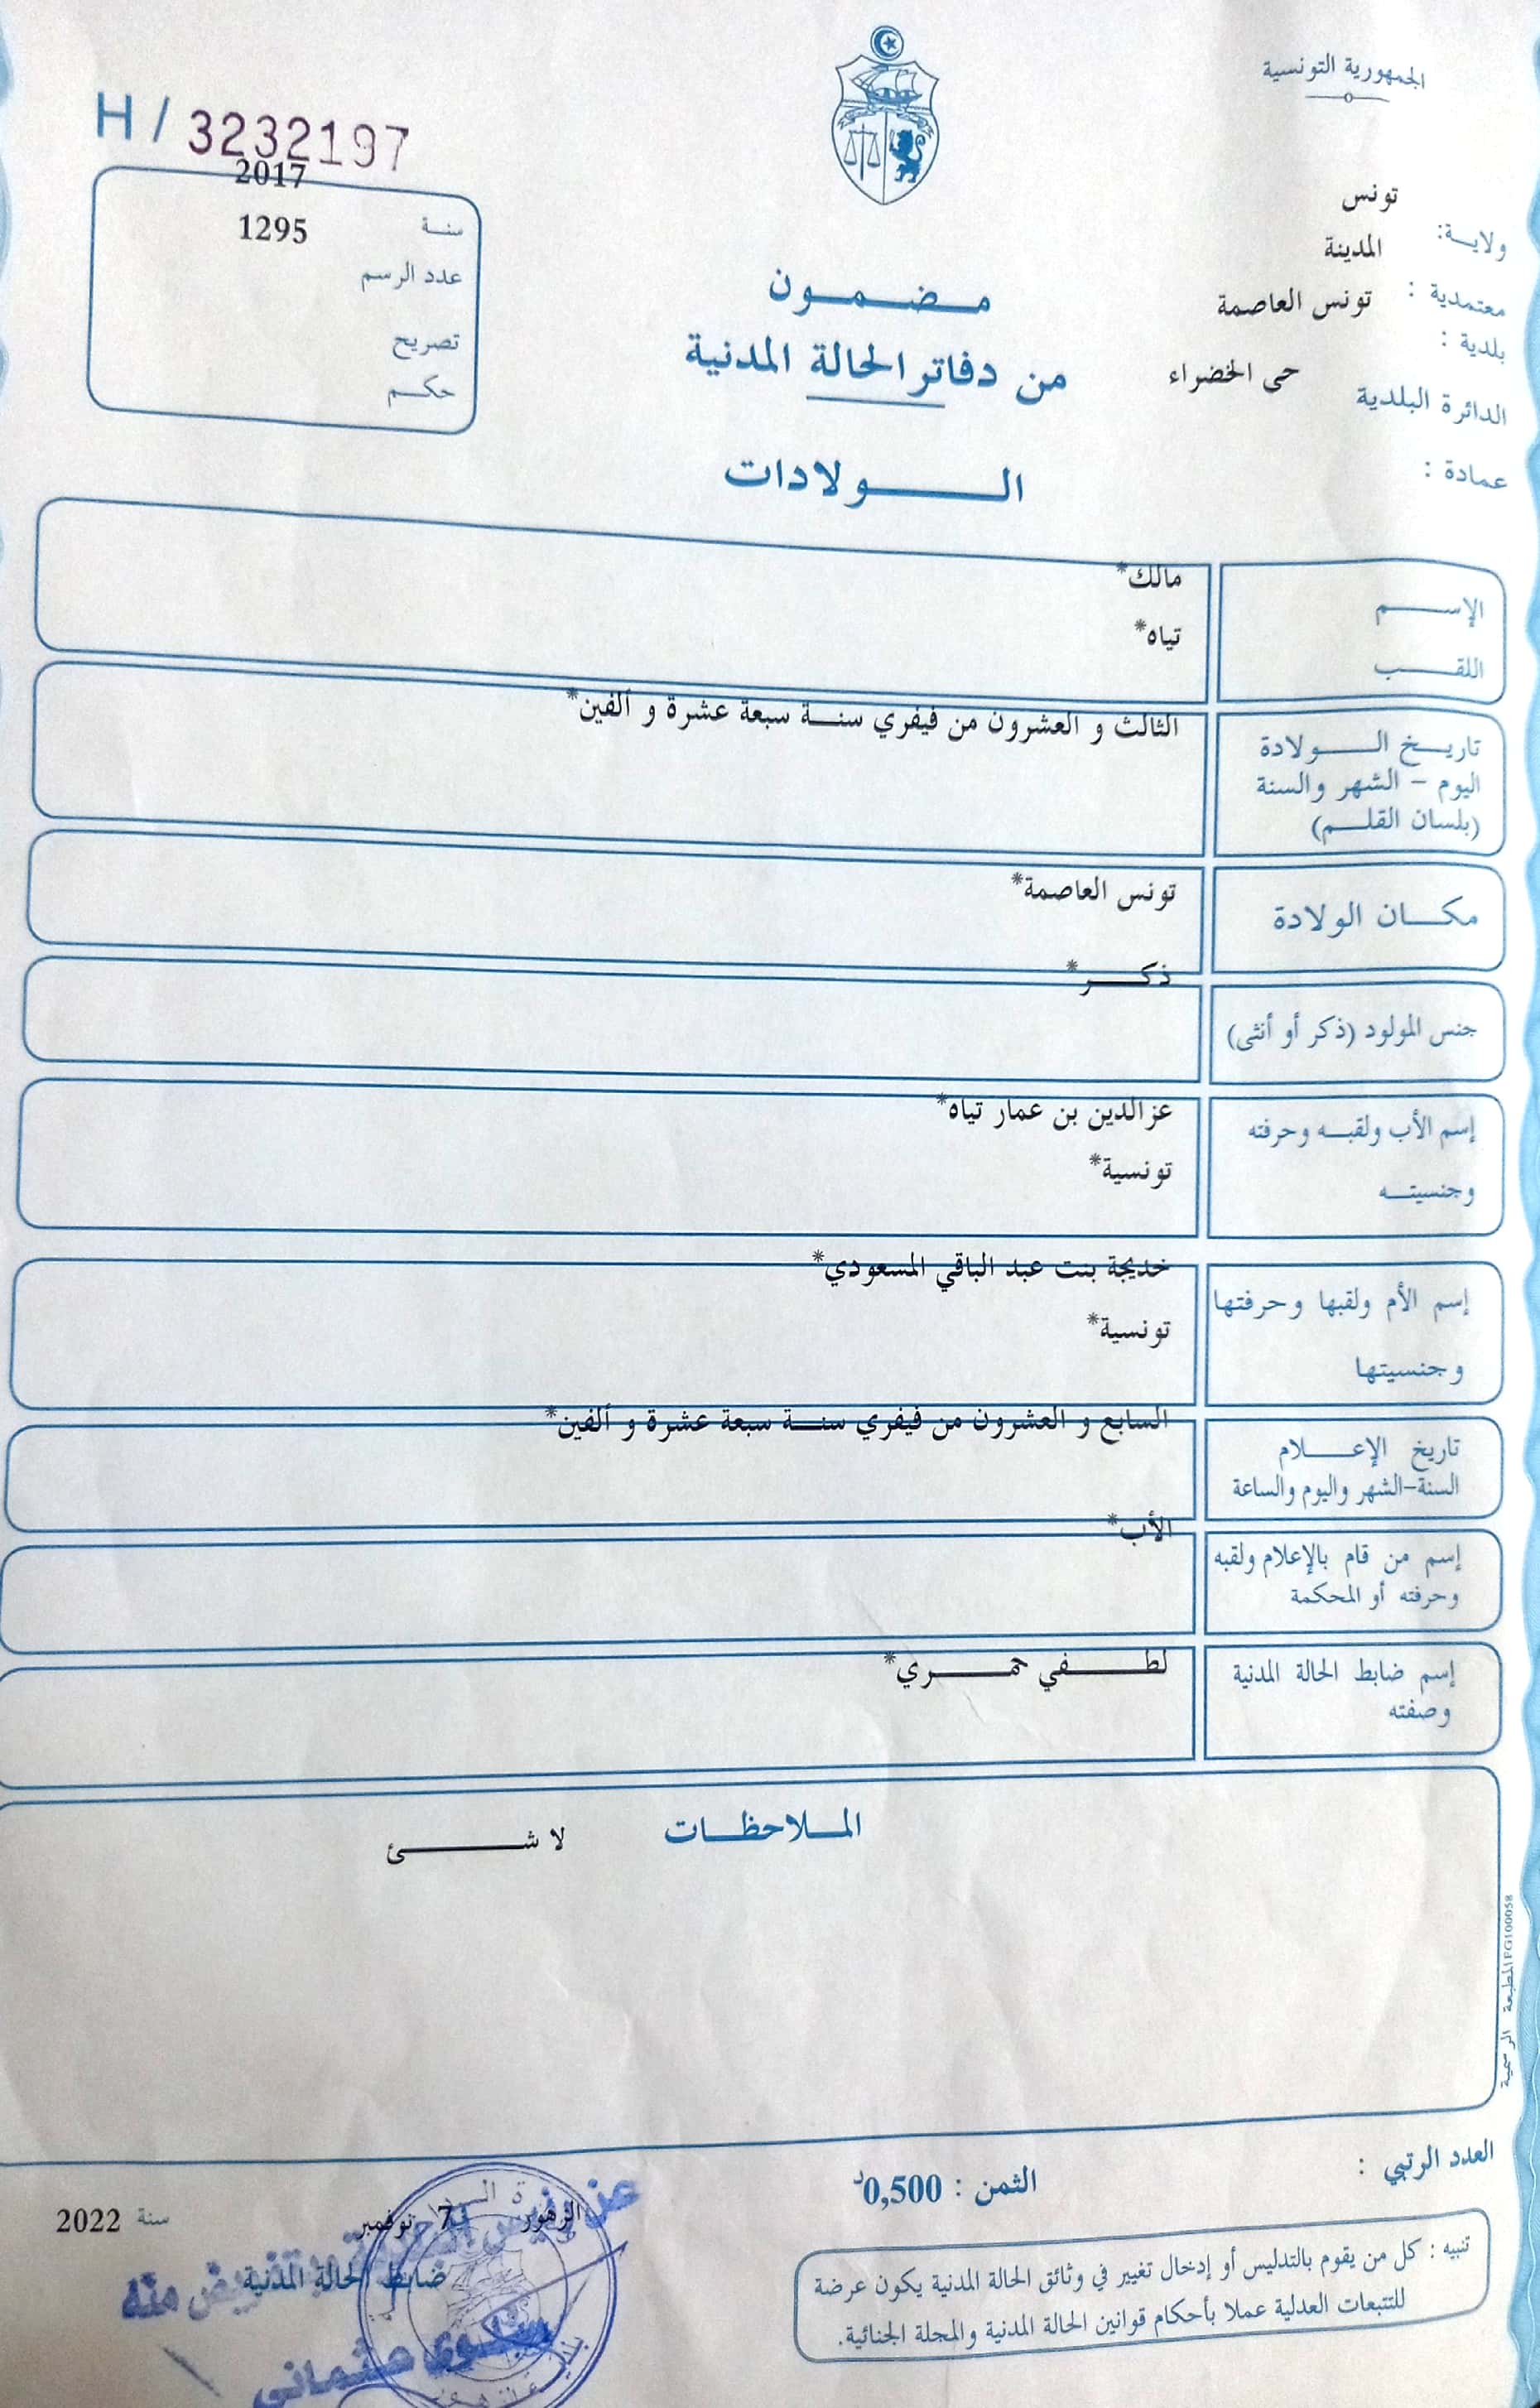 الجمهورية التونسية
H / 3232197
2017
سنة
1295
عدد الرسم
تصريح
حكم
تونس
ولاية:
المدينة
معتمدية :
تونس العاصمة
بلدية :
حى الخضراء
الدائرة البلدية
عمادة :
مضمون
من دفاتر الحالة المدنية
الولادات
الإسم
مالك*
اللقب
تياه*
تاريخ الولادة
اليوم - الشهر والسنة
(بلسان القلم)
الثالث و العشرون من فيفري سنة سبعة عشرة و ألفين*
مكان الولادة
تونس العاصمة*
جنس المولود (ذكر أو أنثى)
ذكر*
إسم الأب ولقبه وحرفته
وجنسيته
عزالدين بن عمار تياه*
تونسية*
إسم الأم ولقبها وحرفتها
وجنسيتها
خديجة بنت عبد الباقي المسعودي*
تونسية*
تاريخ الإعلام
السنة-الشهر واليوم والساعة
السابع و العشرون من فيفري سنة سبعة عشرة و ألفين*
إسم من قام بالإعلام ولقبه
وحرفته أو المحكمة
الأب*
إسم ضابط الحالة المدنية
وصفته
لطفي حمري*
الملاحظات
لا شئ
المطبعة الرسمية FG100058
العدد الرتبي :
الثمن : 0,500د
تنبيه : كل من يقوم بالتدليس أو إدخال تغيير في وثائق الحالة المدنية يكون عرضة
للتتبعات العدلية عملا بأحكام قوانين الحالة المدنية والمجلة الجنائية.
الزهور في 7 نوفمبر سنة 2022
ضابط الحالة المدنية
عن رئيس منه
سلوى عثماني